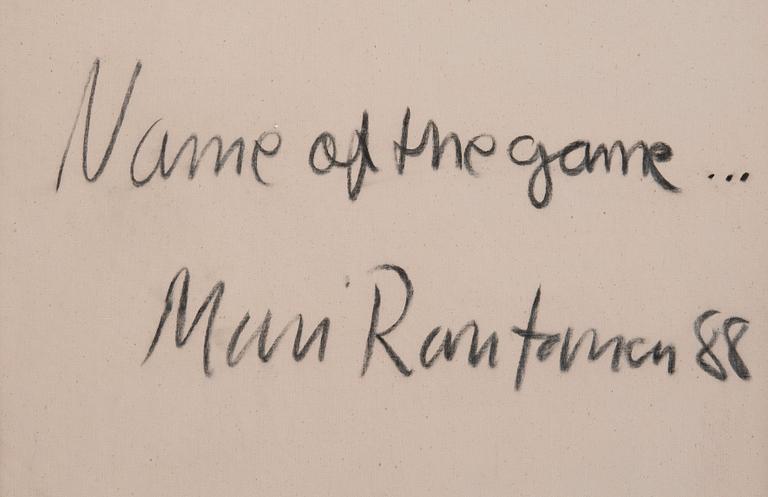 Name of the game...
Mari Rantanen 88